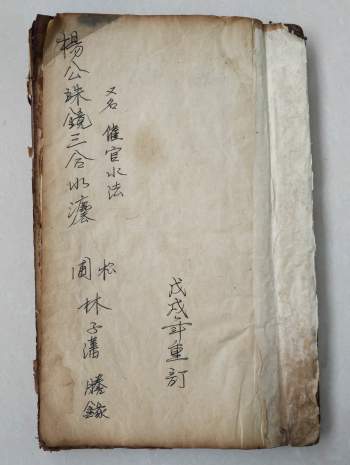 楊公珠鏡三合水瀍
又名 催官水法
松圃 林子藩 謄錄
戊戌年重訂